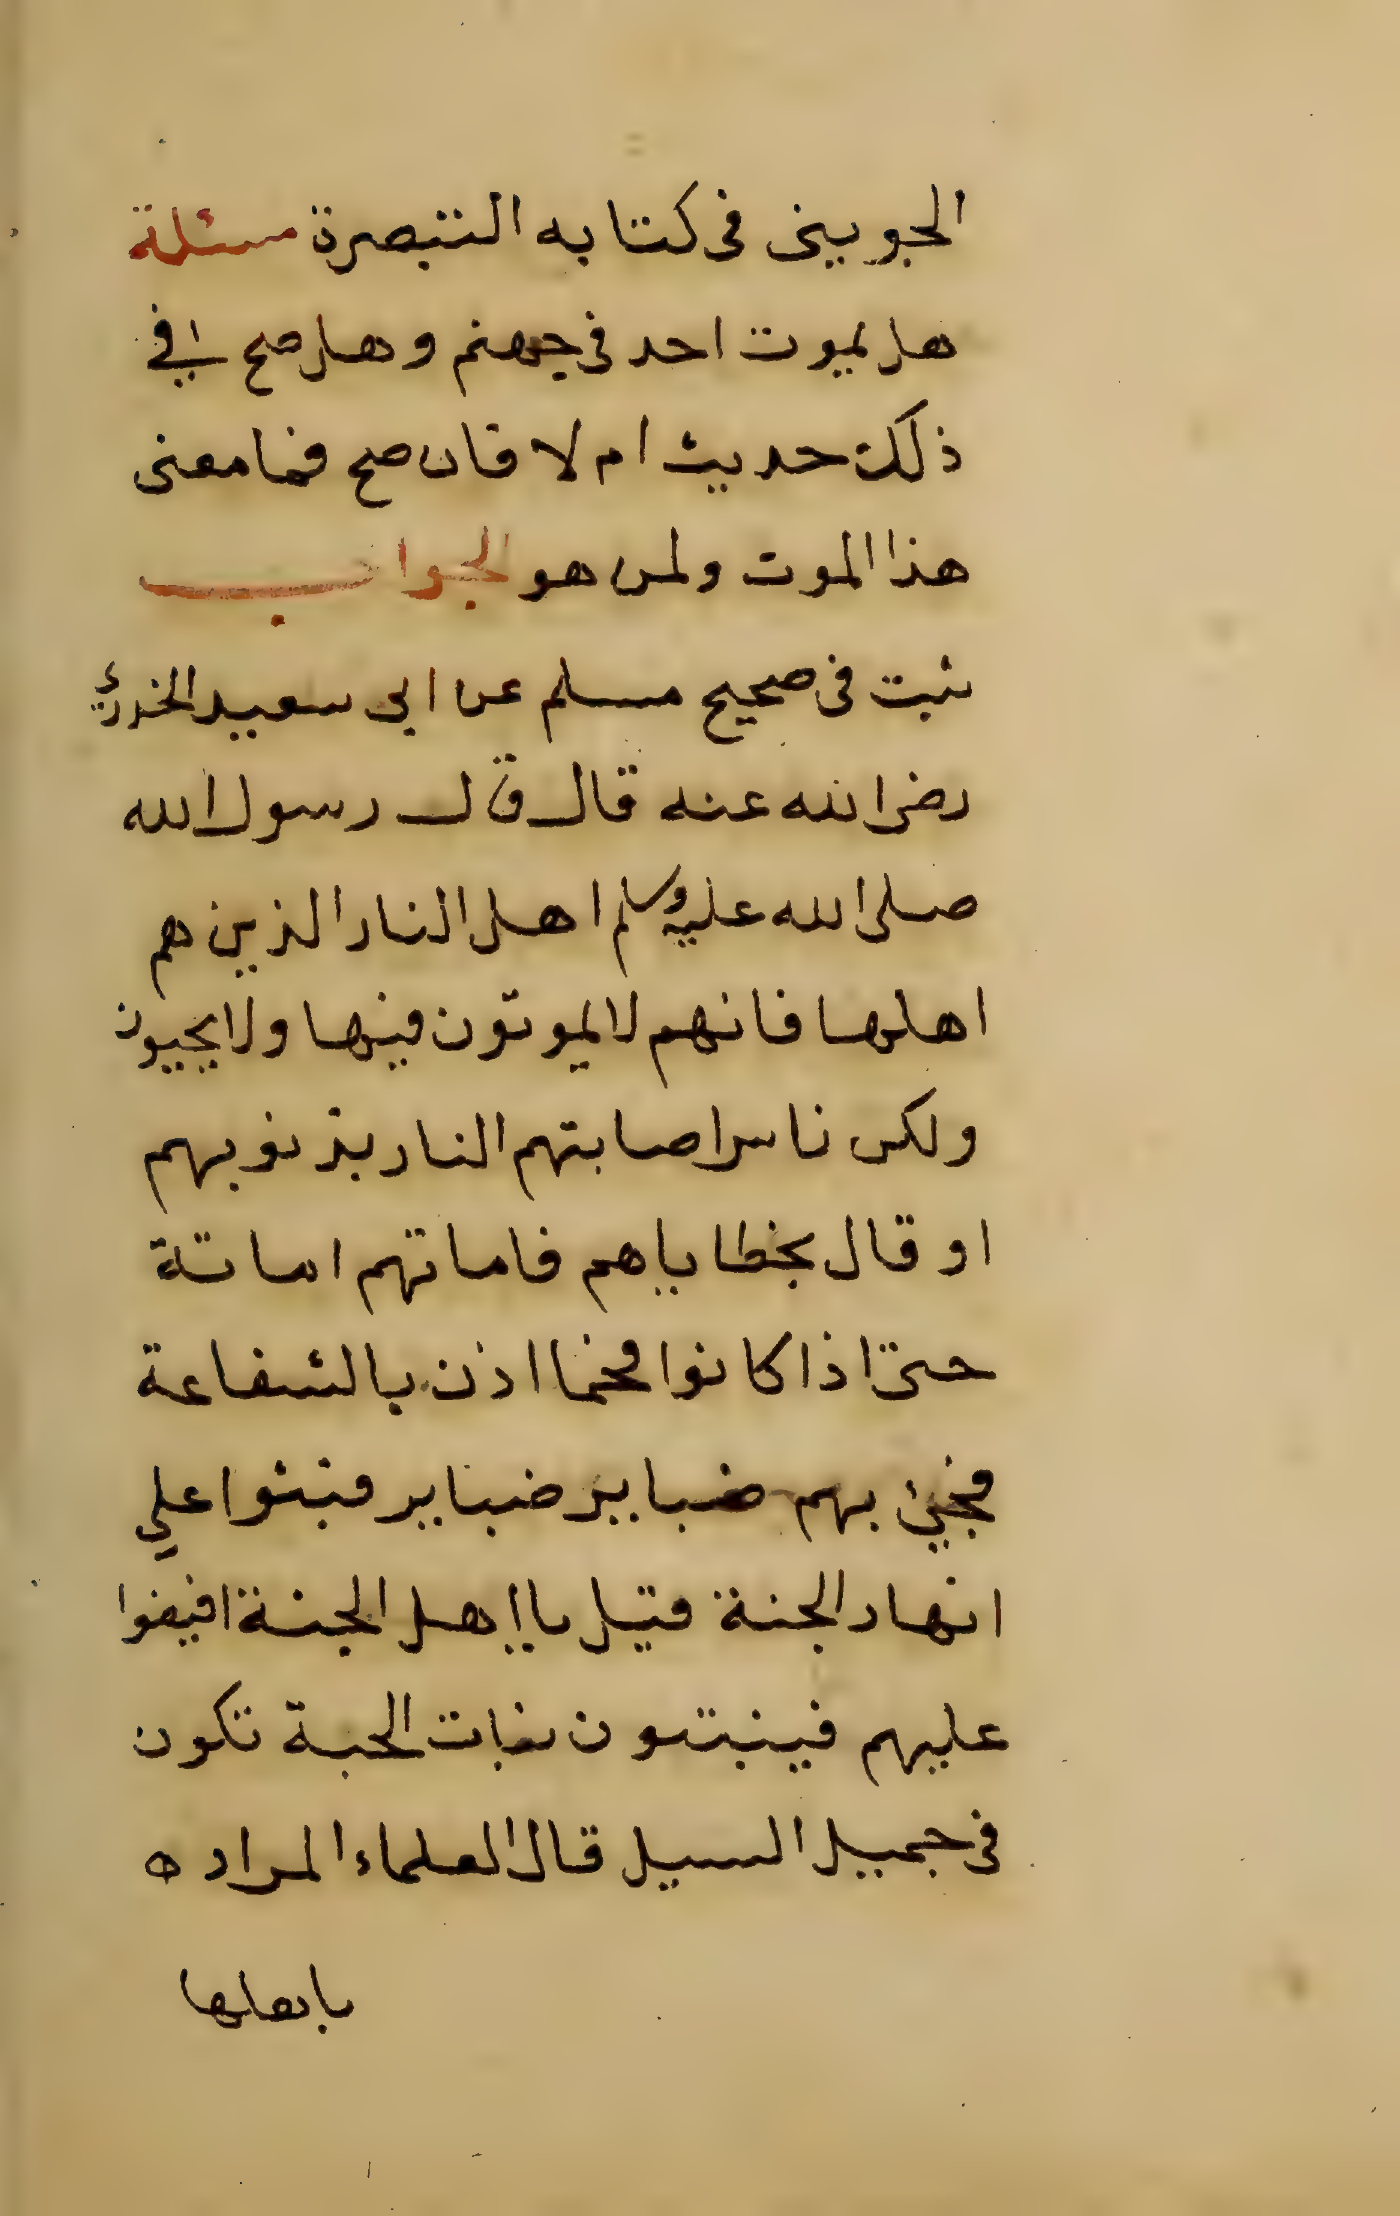 الجوينى فى كتابه التتبصرة مسئلة
هل يموت احد فى جهنم وهل صح في
ذلك حديث ام لا فان صح فما معنى
هذا الموت ولمن هو الجواب
ثبت فى صحيح مسلم عن ابى سعيد الخدري
رضى الله عنه قال قال رسول الله
صلى الله عليه وسلم اهل النار الذين هم
اهلها فانهم لا يموتون فيها ولا يحيون
ولكن ناس اصابتهم النار بذنوبهم
او قال بخطاياهم فاماتهم اماتة
حتى اذا كانوا فحما اذن بالشفاعة
فجئ بهم ضباير ضباير فبثوا علي
انهار الجنة فقيل يا اهل الجنة افيضوا
عليهم فينبتون نبات الحبة تكون
فى حميل السيل قال العلماء المراد ه
باهلها